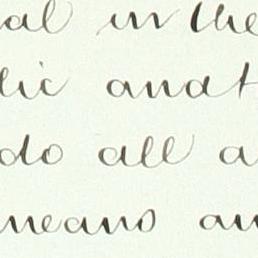 al in the
lic anat
do all a
means an